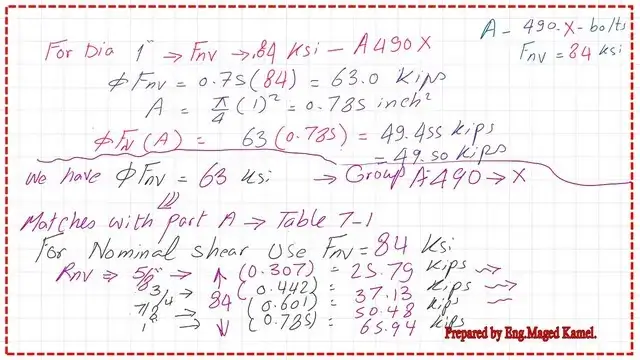 A - 490-X-bolts
Fnv = 84 ksi
For Dia 1" → Fnv → .84 Ksi - A490X
ϕFnv = 0.75(84) = 63.0 Kips
A = π/4 (1)² = 0.785 inch²
ϕFN(A) = 63(0.785) = 49.455 Kips
= 49.50 Kips
We have ϕFnv = 63 Ksi → Group A-490 → X
Matches with part A → Table 7-1
For Nominal shear Use Fnv = 84 Ksi
Rnv ⇒ 5/8" → (0.307) = 25.79 Kips
3/4 → (0.442) = 37.13 Kips
7/8 → 84 (0.601) = 50.48 Kips
1" → (0.785) = 65.94 Kips
Prepared by Eng.Maged Kamel.